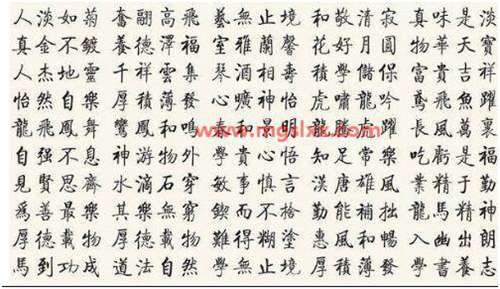 人淡如菊 奮翮高飛 藝無止境 和敬清寂 真味是淡
真金不鍍 養德澤福 室雅蘭馨 花好月圓 物華天寶
人杰地靈 千祥雲集 琴酒相壽 積學儲保 富貴吉祥
怡然自樂 厚積薄發 心曠神怡 虎嘯龍吟 鳶飛魚躍
龍飛鳳舞 鸞鳳和鳴 春和景明 龍騰虎躍 長風萬裏
自強不息 神游物外 學貴心悟 知足常樂 吃虧是福
見賢思齊 水滴石穿 敏事慎言 漢唐雄風 業精于勤
為善最樂 其樂無窮 鍥而不捨 勤能補拙 龍馬精神
厚德載物 厚德載物 難得糊塗 惠風和暢 入幽出朗
馬到功成 道法自然 學無止境 厚積薄發 學書養志